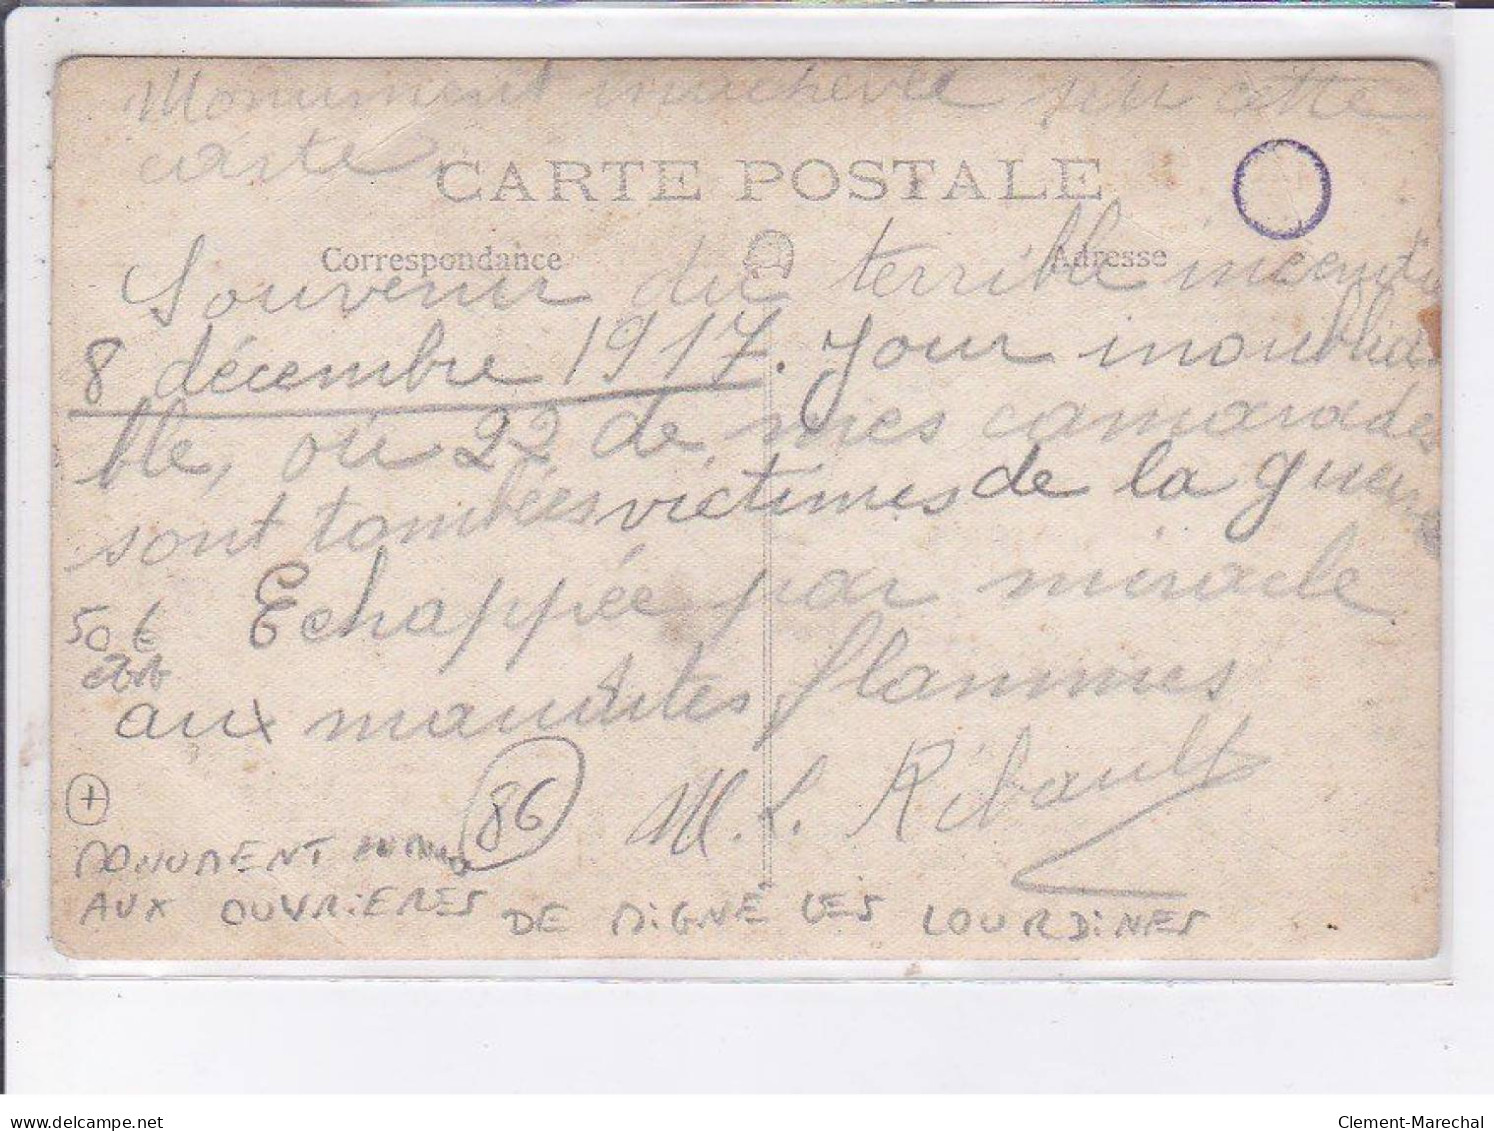 Monument inachevée sur cette
carte.
CARTE POSTALE
Correspondance
Adresse
Souvenir du terrible incendie
8 décembre 1917. Jour inoublia
ble, où 22 de mes camarades
sont tombées victimes de la guerre
Echappée par miracle
aux maudites flammes
M. L. Ribault
50 €
+
86
MONUMENT
AUX OUVRIERES DE MIGNÉ LES LOURDINES
www.delcampe.net
Clement-Marechal